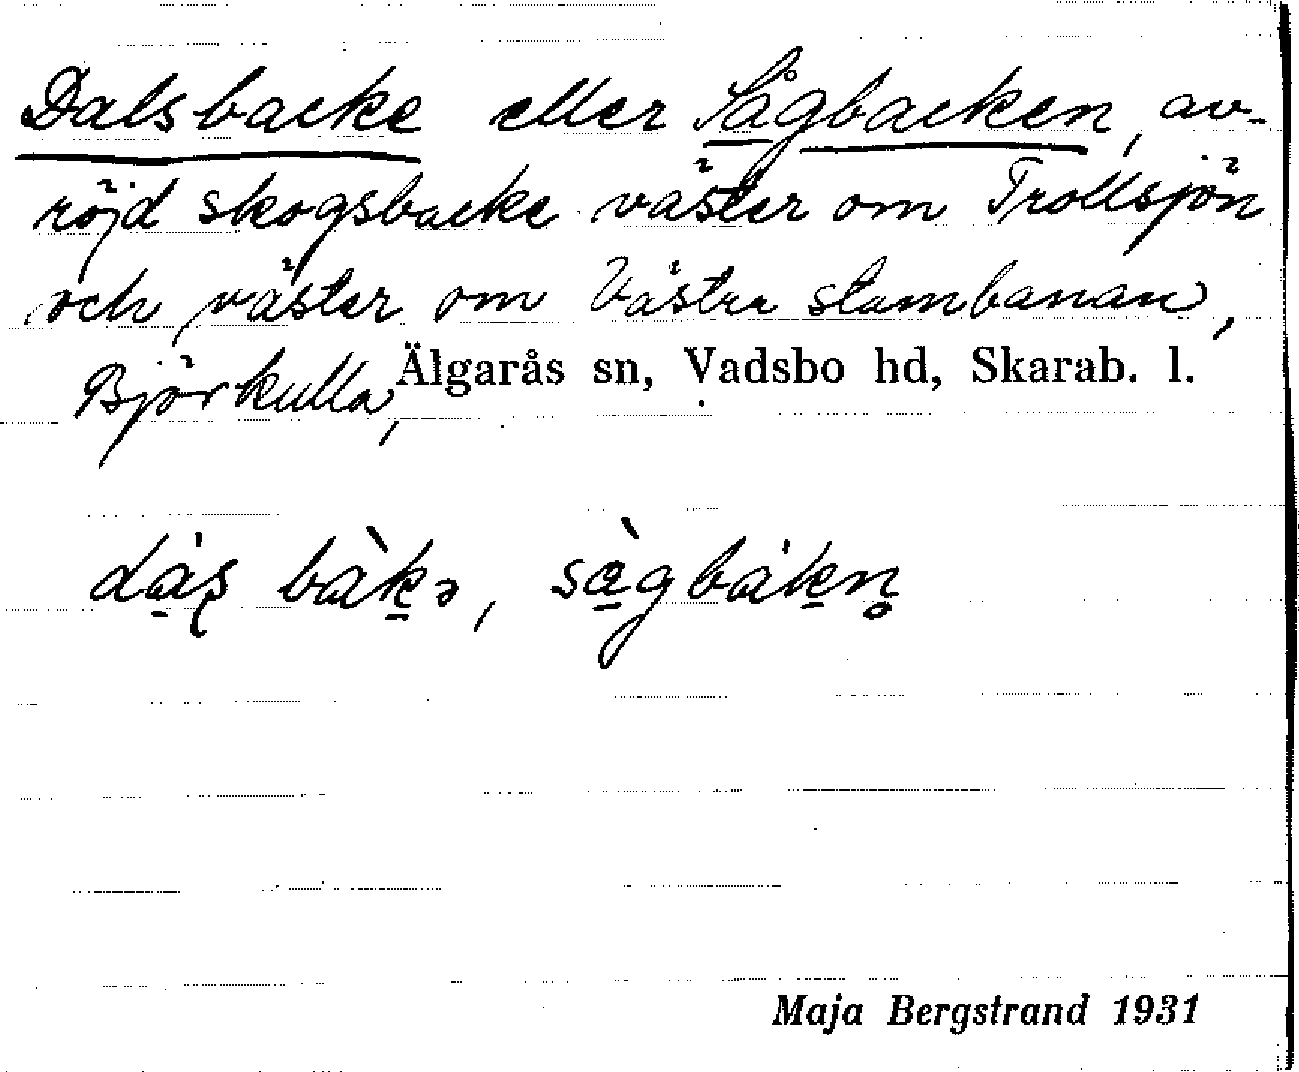 Dalsbacke eller Sågbacken, av-
röjd skogsbacke väster om Trollsjön
och väster om Västra stambanan,
Björkulla, Älgarås sn, Vadsbo hd, Skarab. l.
dás bàkə, sàgbákn̥
Maja Bergstrand 1931